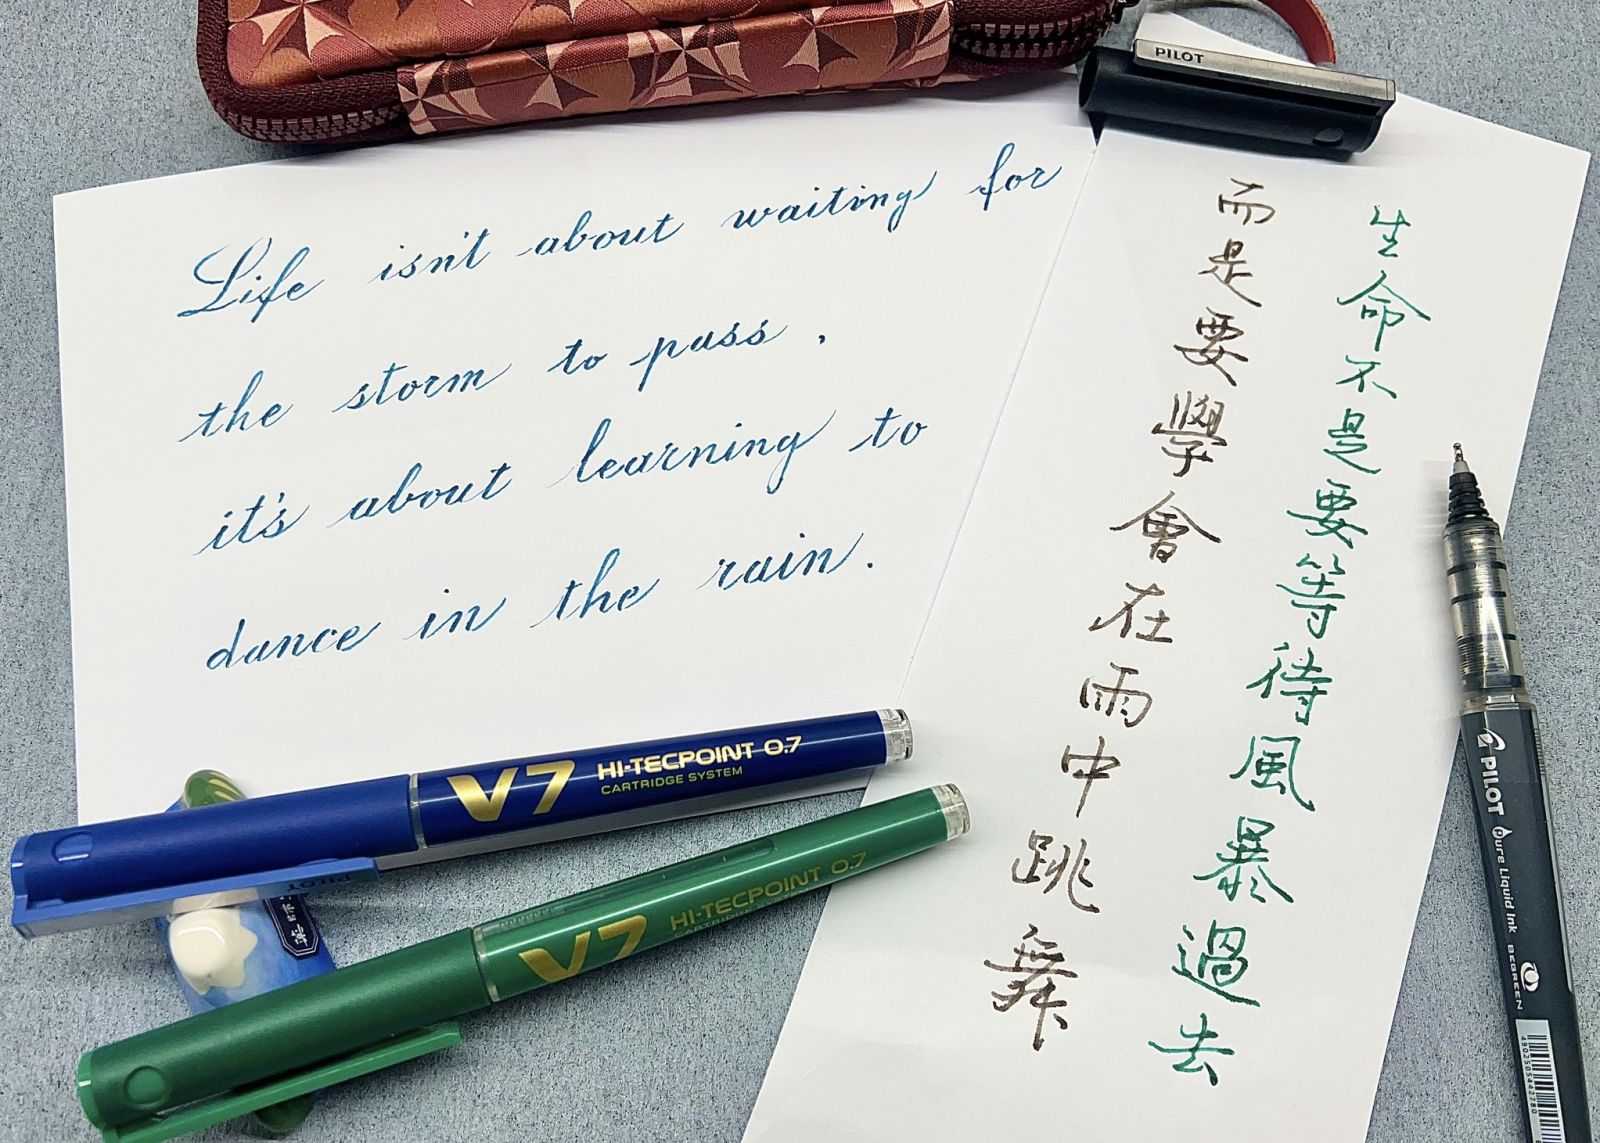 PILOT
Life isn't about waiting for
the storm to pass,
it's about learning to
dance in the rain.
生命不是要等待風暴過去
而是要學會在雨中跳舞
V7 HI-TECPOINT 0.7
CARTRIDGE SYSTEM
PILOT
V7 HI-TECPOINT 0.7
CARTRIDGE SYSTEM
PILOT Pure Liquid Ink BEGREEN
4902505442780